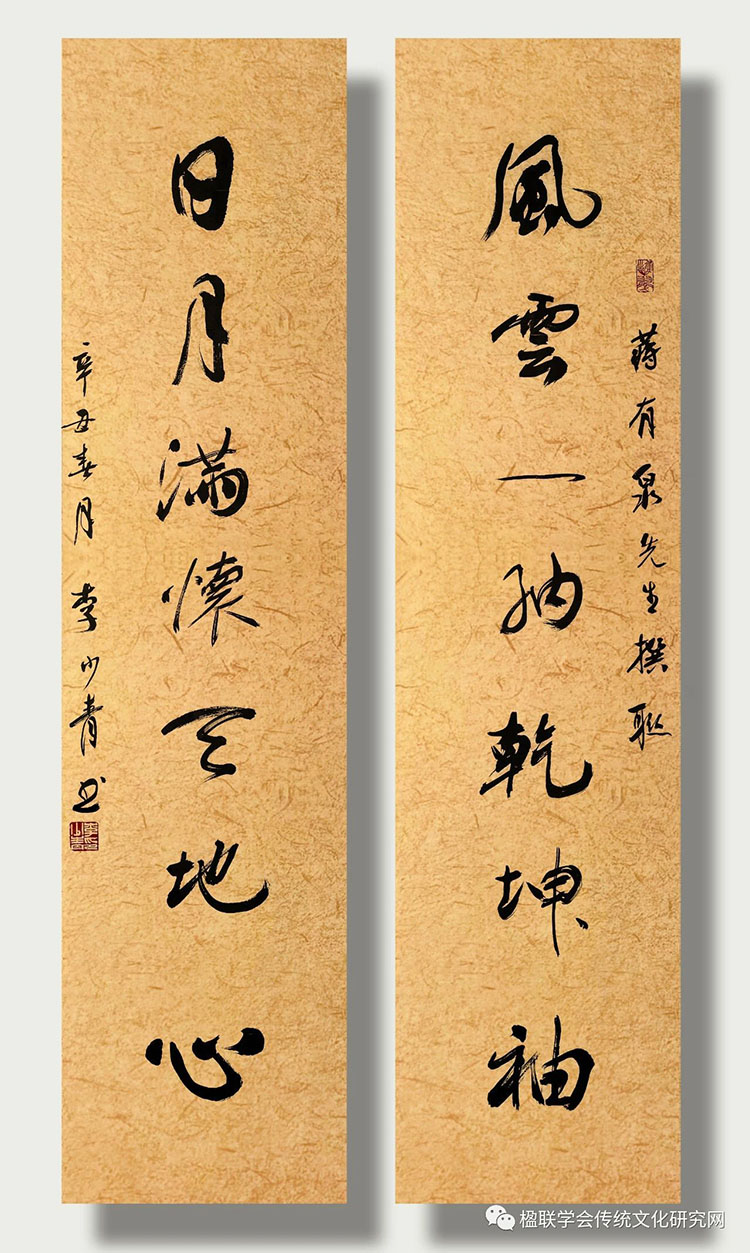 風雲一納乾坤袖
蔣有泉先生撰聯
日月滿懷天地心
辛丑春月 李少青书
楹联学会传统文化研究网